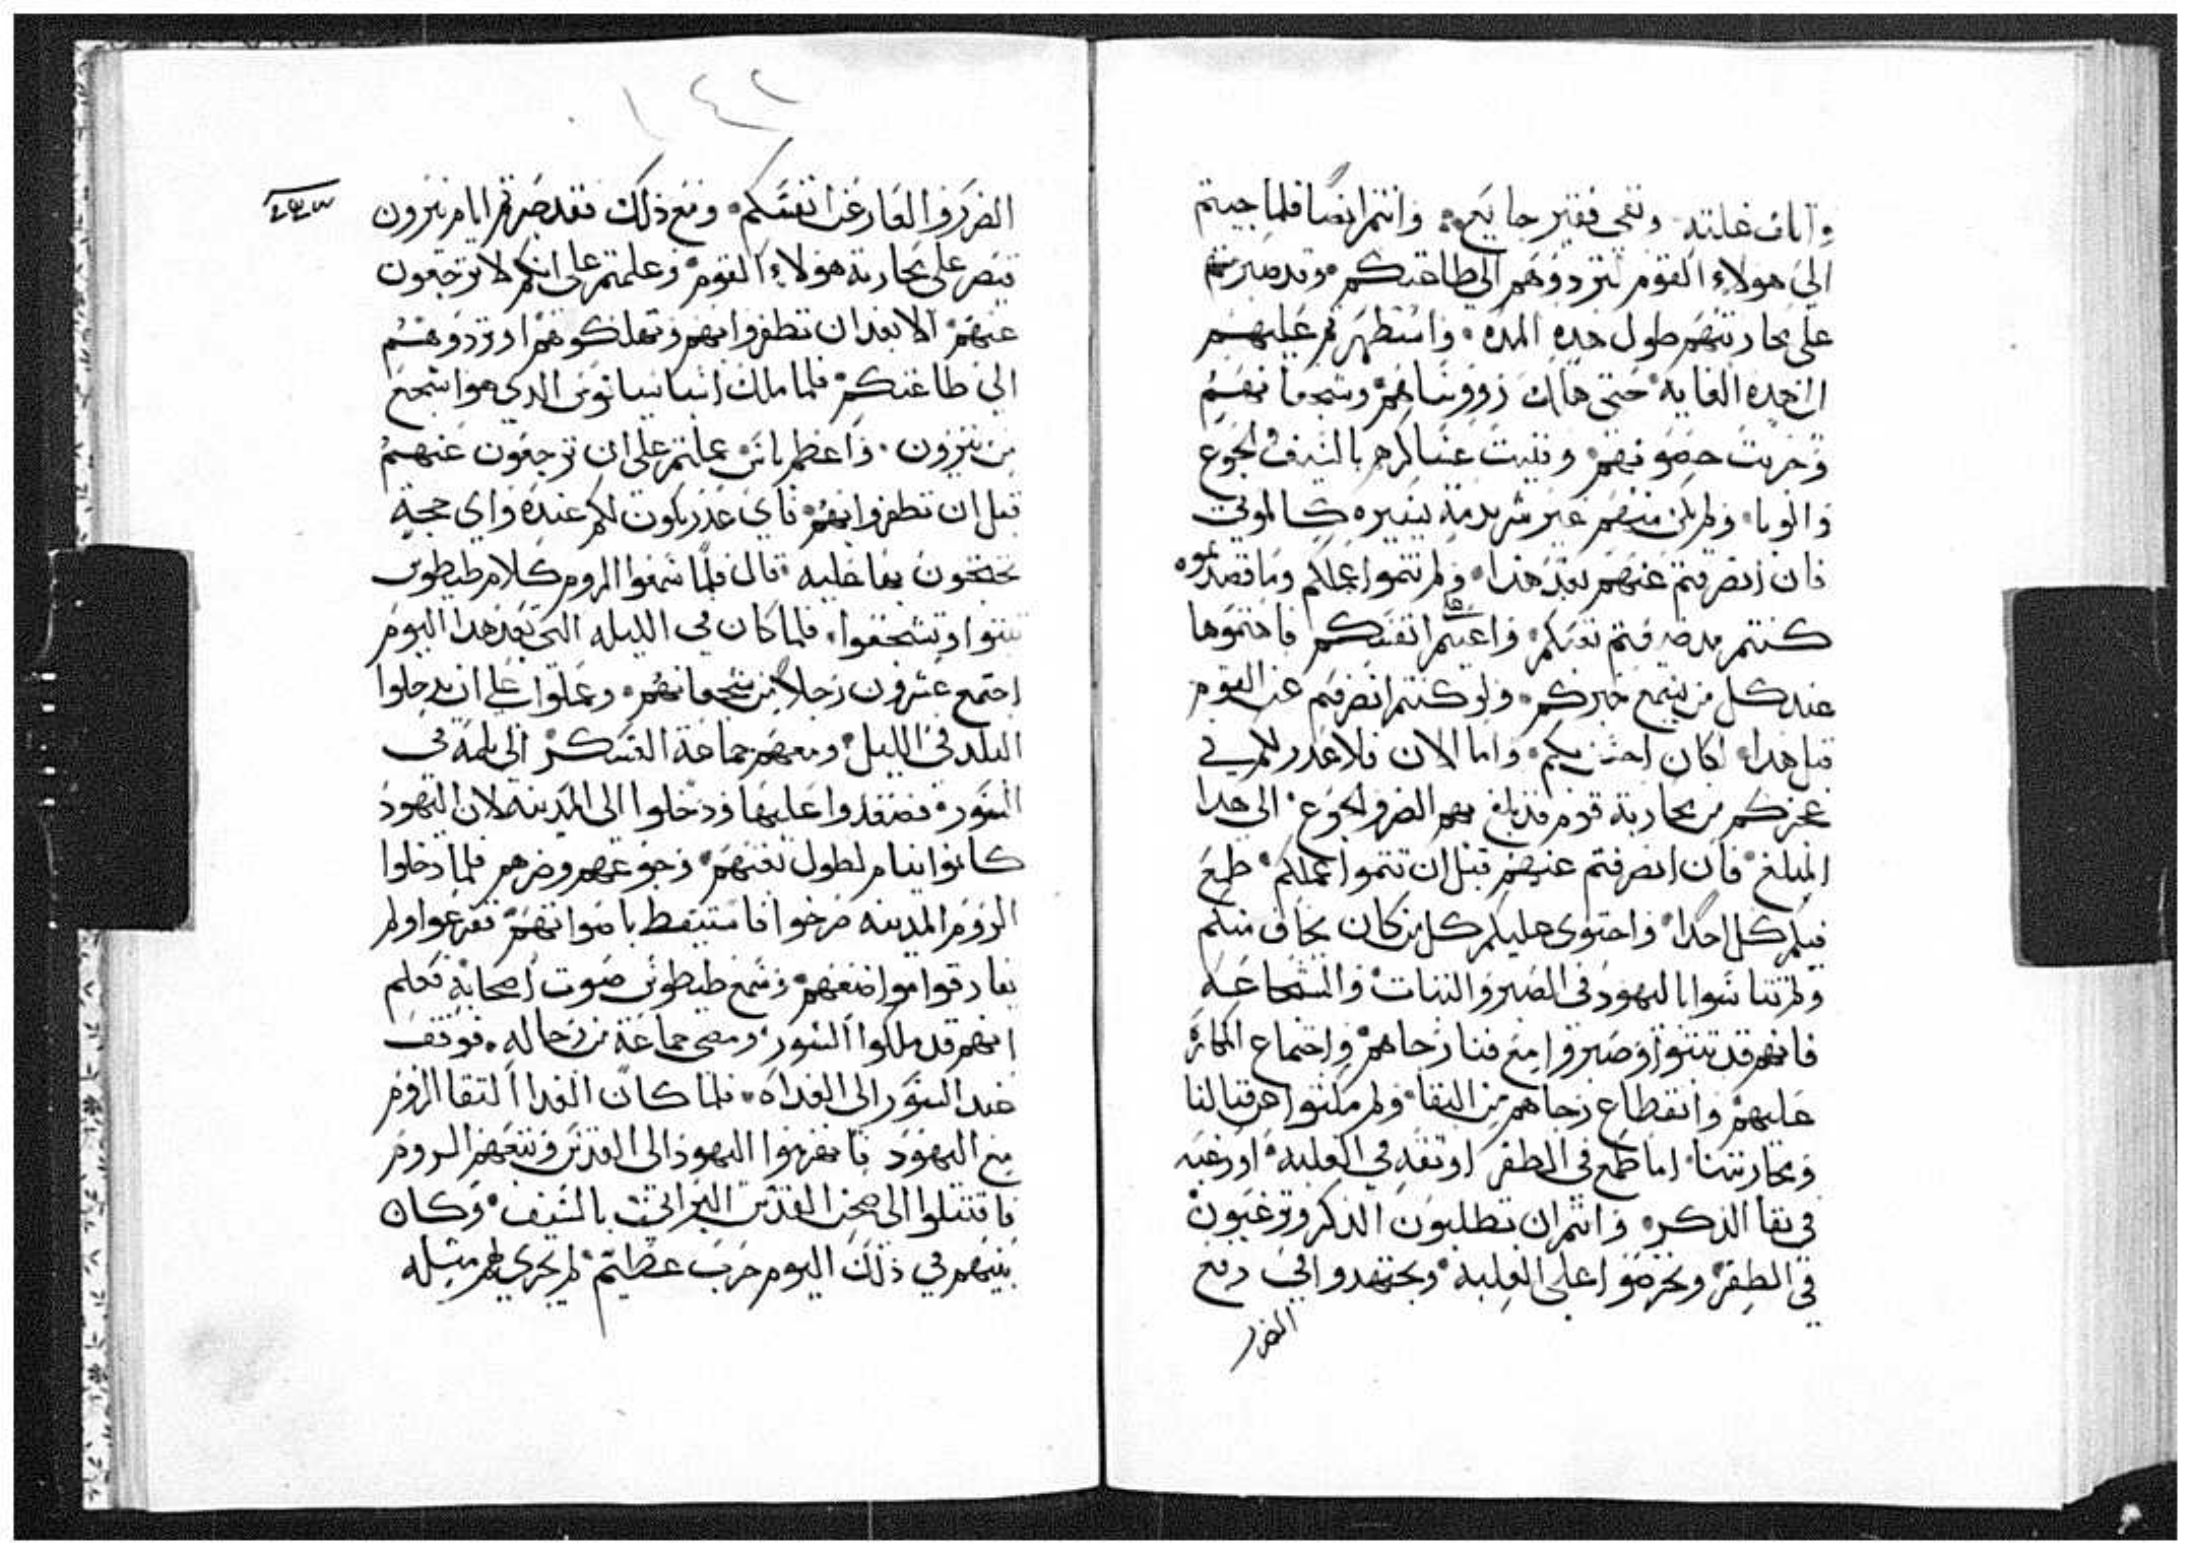 واتلف غلته وبقي فقير جايع وانتم ايضا فلما جيتم
الى هولاء القوم لتردوهم الى طاعتكم وقد صبرتم
على محاربتهم طول هده المده واستظهرتم عليهم
الى هده الغايه حتى هلك رووساهم وشجعانهم
وخربت حصونهم وفنيت عساكرهم بالسيف والجوع
والوبا ولم يبق منهم غير شردمة يسيره كالموتى
فان انصرفتم عنهم بعد هذا ولم تتموا عملكم وما قصدتموه
كنتم قد ضيعتم تعبكم واعبتم انفسكم فاحتموها
عند كل من يسمع خبركم ولو كنتم انصرفتم عن القوم
قبل هدا لكان احسن بكم واما الان فلا عدر لكم في
عجزكم من محاربة قوم قد بلغ بهم الضر والجوع الى هدا
المبلغ فان انصرفتم عنهم قبل ان تتموا عملكم طمع
فيكم كل احدا واحتوى عليكم كل من كان يخاف منكم
ولم تتاسوا باليهود في الصبر والتبات والشجاعه
فانهم قد تبتوا وصبروا مع فنا رجالهم واجتماع المكاره
عليهم وانقطاع رجاهم من البقا ولم يملوا من قتالنا
ومحاربتنا اما طمع في الظفر او تقه في الغلبة او رغبه
في بقا الذكر وانتم ان تطلبون الدكر وترغبون
في الظفر وتحرصوا على الغلبة وتجتهدوا في دفع
الضرر
١٤٢
الضرر والعار عن انفسكم ومع ذلك فقد صبرتم ايام نيرون
قيصر على محاربة هولاء القوم وعملتم على انكم لا ترجعون
عنهم الا بعد ان تظفروا بهم وتهلكوهم او تردوهم
الى طاعتكم فلما ملك اسباسيانوس الدي هو اشجع
من نيرون واعظم باس عملتم على ان ترجعون عنهم
قبل ان تظفروا بهم فاي عدر يكون لكم عنده واي حجة
تحتجون بها عليه قال فلما سمعوا الروم كلام طيطوس
تبتوا وتشجعوا فلما كان في الليله التي بعد هدا اليوم
اجتمع عشرون رجلا من شجعانهم وعملوا على ان يدخلوا
البلد في الليل ومعهم جماعة العسكر الى تلمة في
السور فصعدوا عليها ودخلوا الى المدينه لان اليهود
كانوا نيام لطول تعبهم وجوعهم وضرهم فلما دخلوا
الروم المدينه صرخوا فاستيقظ باصواتهم ففزعوا ولم
يفارقوا مواضعهم وسمع طيطوس صوت اصحابة فعلم
انهم قد ملكوا السور ومضى جماعة من رجاله فوقف
عند السور الى الغداه فلما كان الغدا التقا الروم
مع اليهود فانهزموا اليهود الى القدس وتبعهم الروم
فاقتتلوا الى صحن القدس البراني بالسيف وكان
بينهم في ذلك اليوم حرب عظيم لم يجري لهم مثله